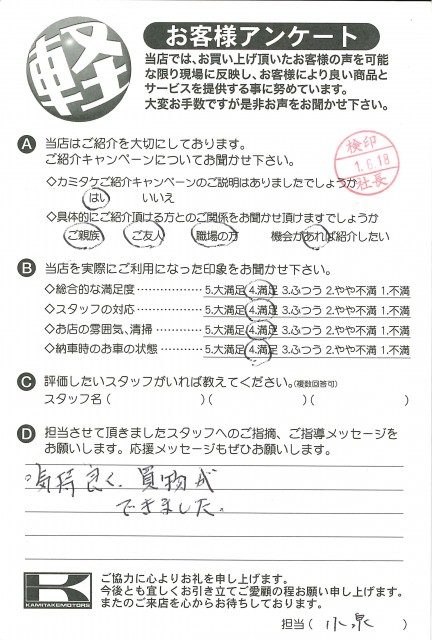 軽
お客様アンケート
当店では、お買い上げ頂いたお客様の声を可能
な限り現場に反映し、お客様により良い商品と
サービスを提供する事に努めています。
大変お手数ですが是非お声をお聞かせ下さい。
A 当店はご紹介を大切にしております。
ご紹介キャンペーンについてお聞かせ下さい。
検印
1.6.18
社長
◇カミタケご紹介キャンペーンのご説明はありましたでしょうか
はい いいえ
◇具体的にご紹介頂ける方とのご関係をお聞かせ頂けますでしょうか
ご親族 ご友人 職場の方 機会があれば紹介したい
B 当店を実際にご利用になった印象をお聞かせ下さい。
◇総合的な満足度 ……………… 5.大満足 4.満足 3.ふつう 2.やや不満 1.不満
◇スタッフの対応 ……………… 5.大満足 4.満足 3.ふつう 2.やや不満 1.不満
◇お店の雰囲気、清掃 ………… 5.大満足 4.満足 3.ふつう 2.やや不満 1.不満
◇納車時のお車の状態 ………… 5.大満足 4.満足 3.ふつう 2.やや不満 1.不満
C 評価したいスタッフがいれば教えてください。(複数回答可)
スタッフ名( )( )( )
D 担当させて頂きましたスタッフへのご指摘、ご指導メッセージを
お願いします。応援メッセージもぜひお願いします。
気持良く、買物が
できました。
K
KAMITAKEMOTORS
ご協力に心よりお礼を申し上げます。
今後とも宜しくお引き立てご愛顧の程お願い申し上げます。
またのご来店を心からお待ちしております。
担当( 小泉 )